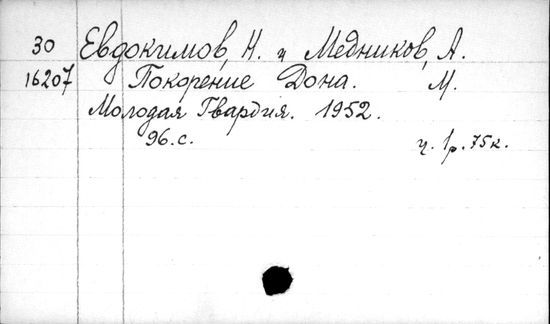 30 Евдокимов, Н. и Медников, А.
16207 Покорение Дона. М.
Молодая Гвардия. 1952.
96.с. ц. 1р.75к.